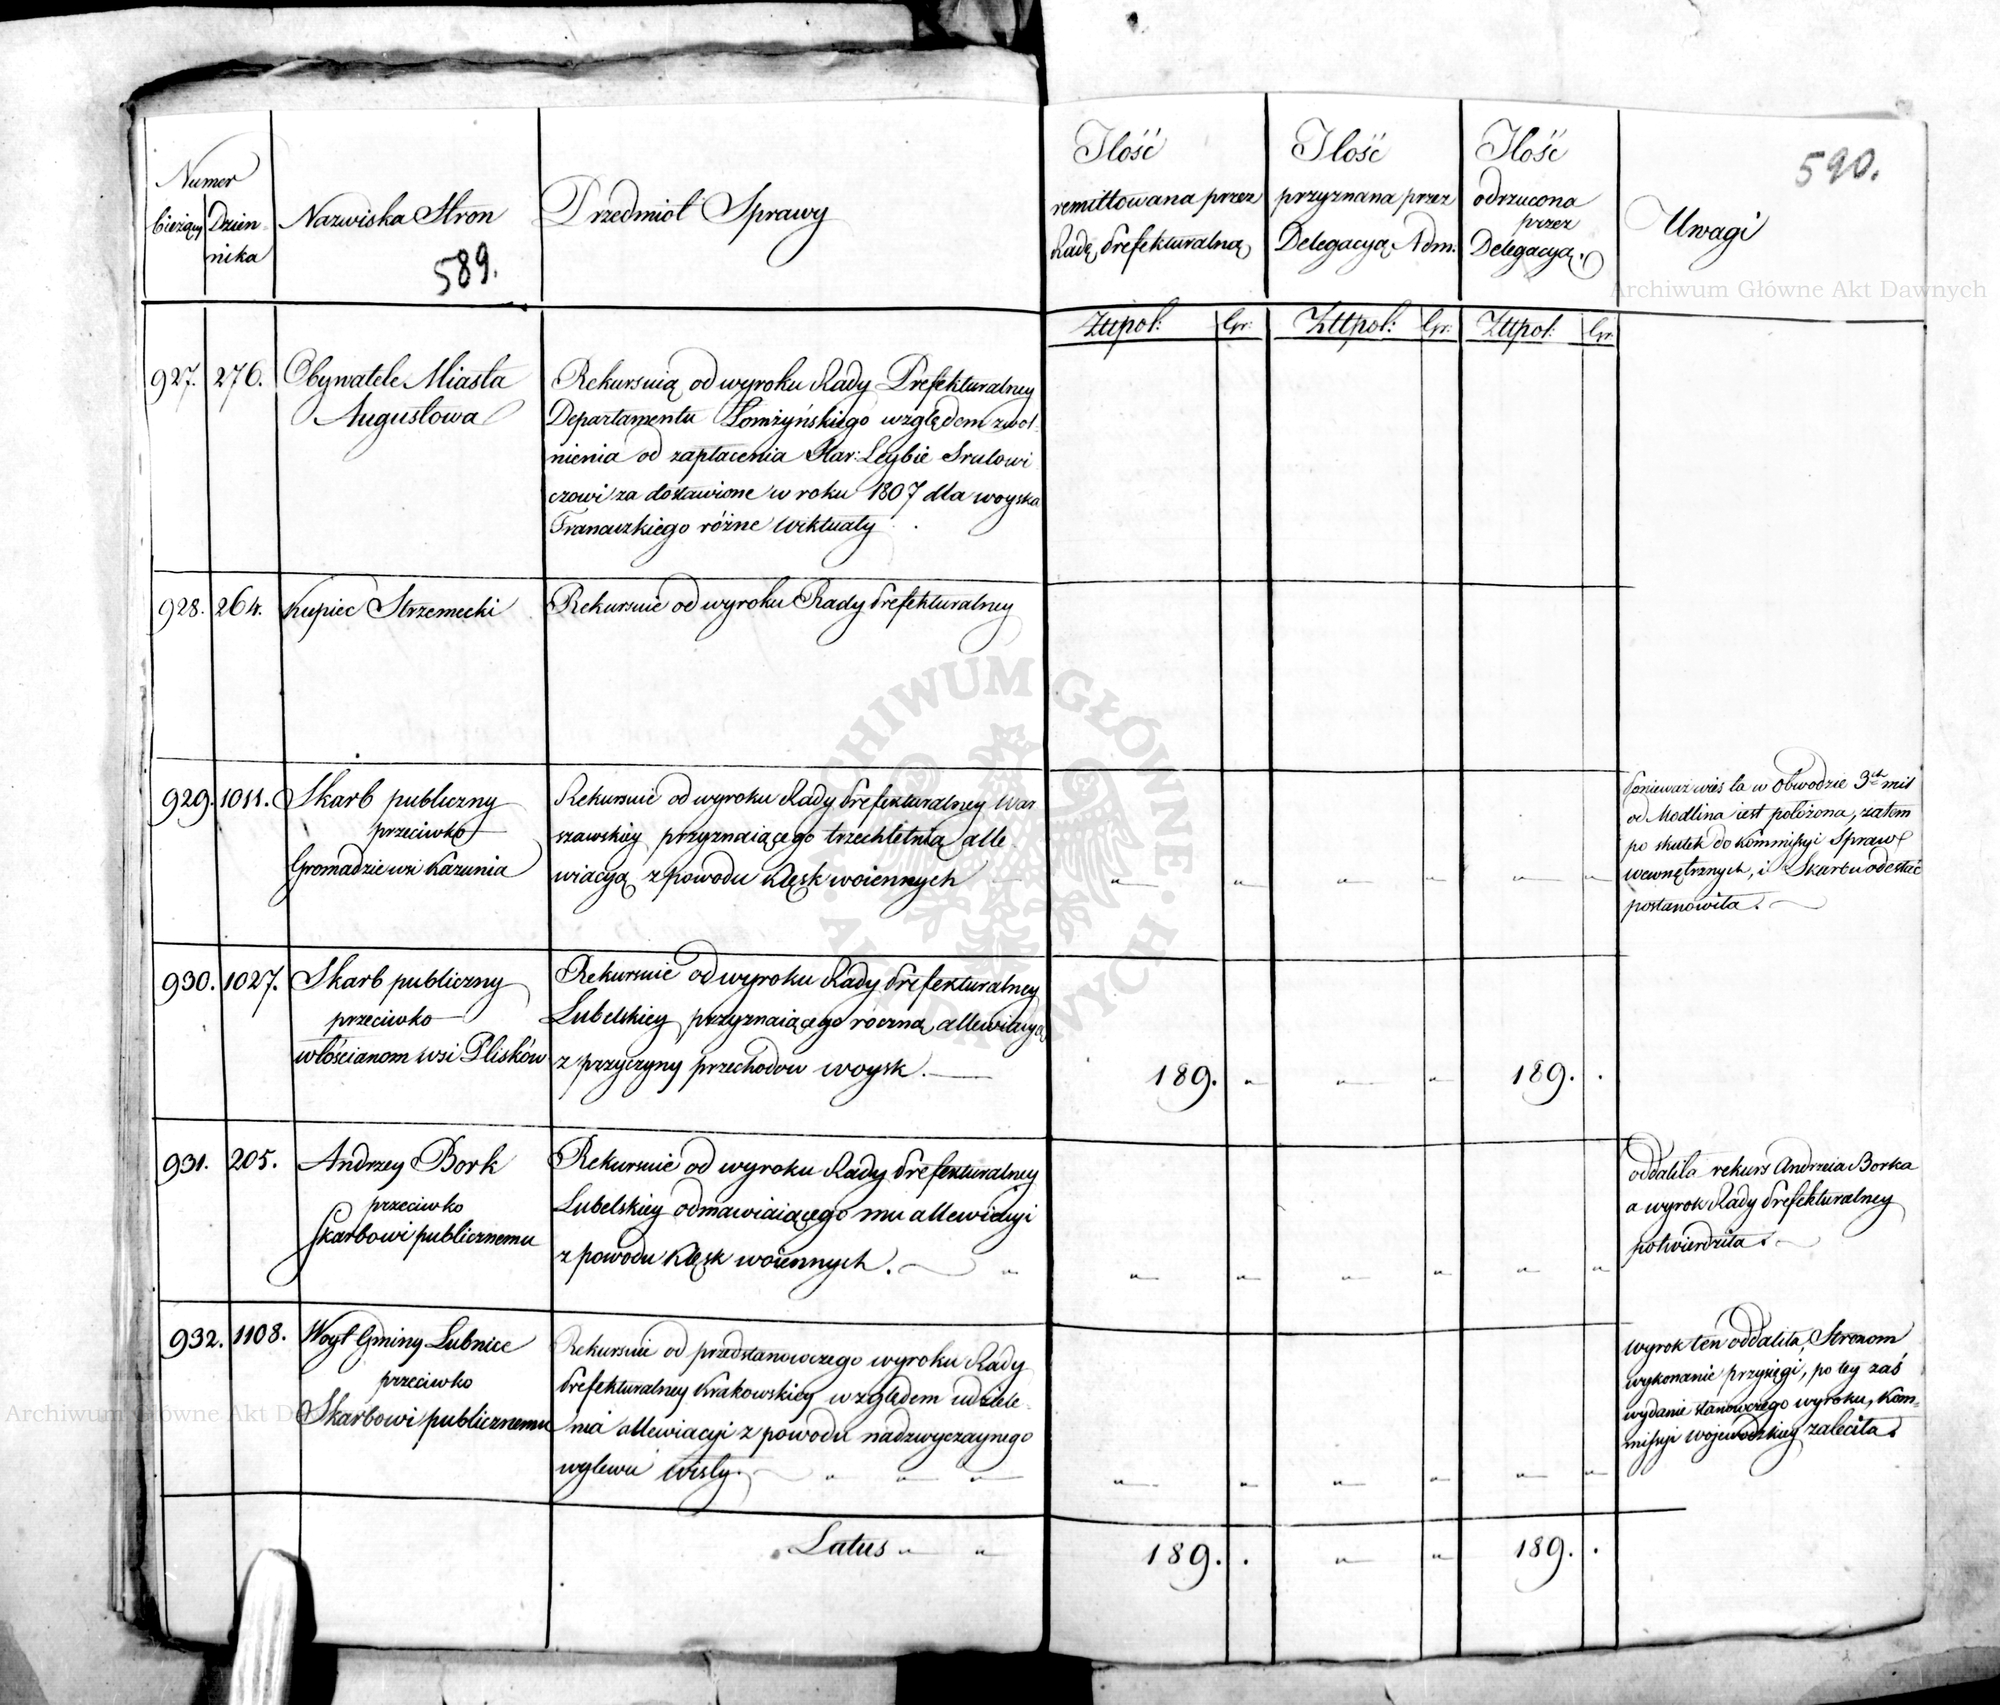 Numer
bieżący
Dzien-
nika
Nazwiska Stron
589.
Przedmiot Sprawy
Ilość
remittowana przez
Radę Prefekturalną
Ilość
przyznana przez
Delegacyą Adm.
Ilość
odrzucona
przez
Delegacyą.
Uwagi
590.
Złłpol: Gr: Złłpol: Gr: Złłpol: Gr:
927. 276. Obywatele Miasta
Augustowa
Rekursuią od wyroku Rady Prefekturalney
Departamentu Łomżyńskiego względem zwol-
nienia od zapłacenia Star: Leybie Srulowi
czowi za dostawione w roku 1807 dla woyska
Francuzkiego różne wiktuały
928. 264. Kupiec Strzemecki
Rekursuie od wyroku Rady Prefekturalney
929. 1011. Skarb publiczny
przeciwko
Gromadzie wsi Kazunia
Rekursuie od wyroku Rady Prefekturalney War
szawskiey przyznaiącego trzechletnią alle
wiacyą z powodu klęsk woiennych
Ponieważ wieś ta w Obwodzie 3ch mil
od Modlina iest położona, zatem
po skutek do Kommissyi Spraw
wewnętrznych, i Skarbu odesłać
postanowiła.
930. 1027. Skarb publiczny
przeciwko
włościanom wsi Plisków
Rekursuie od wyroku Rady Prefekturalney
Lubelskiey przyznaiącego roczną allewiacyą
z przyczyny przechodow woysk.
189. " " " 189. .
931. 205. Andrzey Bork
przeciwko
Skarbowi publicznemu
Rekursuie od wyroku Rady Prefekturalney
Lubelskiey odmawiaiącego mu allewiacyi
z powodu klęsk woiennych.
oddaliła rekurs Andrzeia Borka
a wyrok Rady Prefekturalney
potwierdziła.
932. 1108. Woyt Gminy Lubnice
przeciwko
Skarbowi publicznemu
Rekursuie od przedstanowczego wyroku Rady
Prefekturalney Krakowskiey względem udziele-
nia allewiacyi z powodu nadzwyczaynego
wylewu Wisły.
wyrok ten oddaliła, Stronom
wykonanie przysięgi, po tey zaś
wydanie stanowczego wyroku, Kom-
missyi Wojewodzkiey zaleciła.
Latus " "
189. . " " 189. .
Archiwum Główne Akt Dawnych
ARCHIWUM GŁÓWNE AKT DAWNYCH
Archiwum Główne Akt D